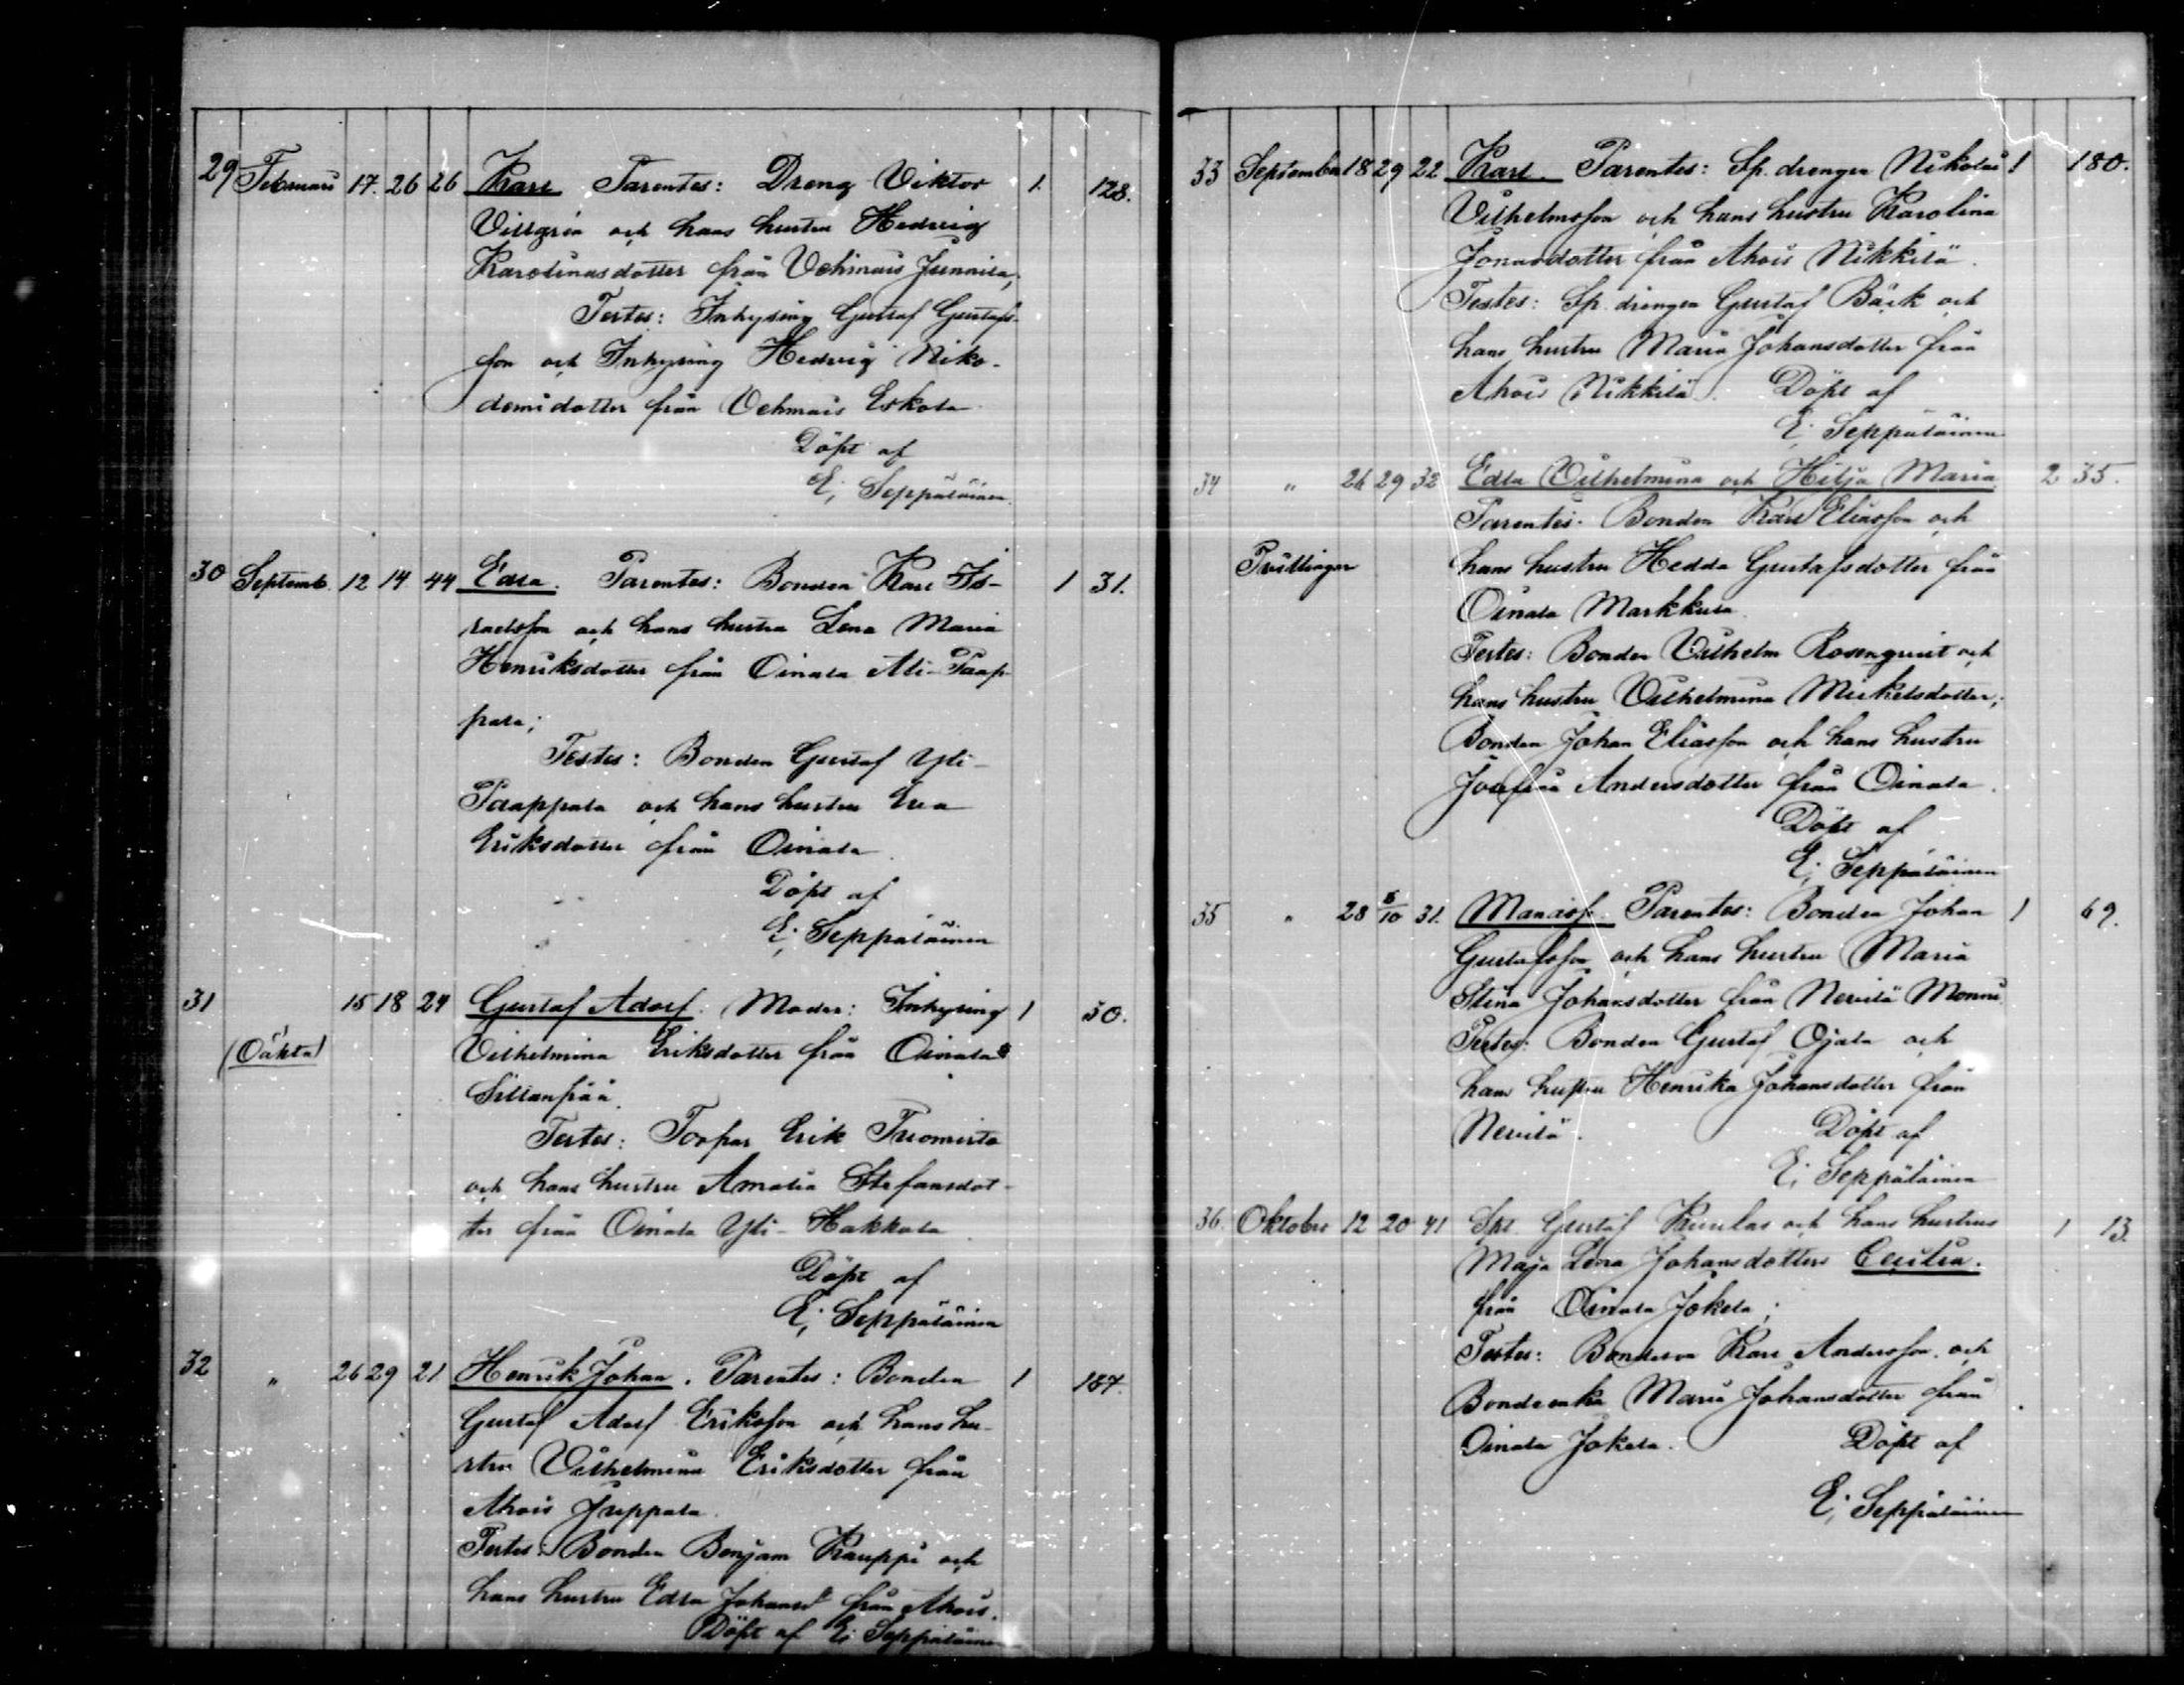 29 Februari 17. 26 26 Karl Parentes: Dreng Viktor 1. 128.
Villgrén och hans hustru Hedvig
Karolinasdotter från Vehmais Junnila,
Testes: Inhysing Gustaf Gustafs-
son och Inhysing Hedvig Niko-
demidotter från Vehmais Eskola
Döpt af
E; Seppäläinen.
30 Septemb. 12 14 44 Edla. Parentes: Bonden Karl Is- 1 31.
raelsson och hans hustru Lena Maria
Henriksdotter från Oinala Ali-Paap-
pala;
Testes: Bonden Gustaf Yli-
Paappala och hans hustru Eva
Eriksdotter från Oinala
Döpt af
E; Seppäläinen
31 15 18 24 Gustaf Adolf. Moder: Inhysing 1 50.
(Oäkta) Vilhelmina Eriksdotter från Oinala
Sillanpää.
Testes: Torpar Erik Tuomisto
och hans hustru Amalia Stefansdot-
ter från Oinala Yli-Hakkala
Döpt af
E; Seppäläinen
32 " 26 29 21 Henrik Johan. Parentes: Bonden 1 187.
Gustaf Adolf Eriksson och hans hu-
stru Vilhelmina Eriksdotter från
Ahois Juppala.
Testes: Bonden Benjam Kauppi och
hans hustru Edla Johansd från Ahois.
Döpt af E; Seppäläinen
33 September 18 29 22 Karl. Parentes: Sp. drengen Nikolai 1 180.
Vilhelmsson och hans hustru Karolina
Jonasdotter från Ahois Nikkilä.
Testes: Sp. drengen Gustaf Bäck och
hans hustru Maria Johansdotter från
Ahois Nikkilä. Döpt af
E; Seppäläinen
34 " 26 29 32 Edla Vilhelmina och Hilja Maria 2 35.
Parentes. Bonden Karl Eliasson och
Tvillingar hans hustru Hedda Gustafsdotter från
Oinala Markkula.
Testes: Bonden Vilhelm Rosenqvist och
hans hustru Vilhelmina Mickelsdotter;
Bonden Johan Eliasson och hans hustru
Josefina Andersdotter från Oinala.
Döpt af
E; Seppäläinen
35 " 28 5/10 31. Manasse. Parentes: Bonden Johan 1 69.
Gustafsson och hans hustru Maria
Stina Johansdotter från Nervilä Monni
Testes: Bonden Gustaf Ojala och
hans hustru Henrika Johansdotter från
Nervilä. Döpt af
E; Seppäläinen
36. Oktober 12 20 41 Spt. Gustaf Kuulas och hans hustrus 1 13.
Maja Lena Johansdotters Cecilia.
från Oinala Jokela;
Testes: Bondeson Karl Andersson och
Bondeenka Maria Johansdotter från
Oinala Jokela. Döpt af
E; Seppäläinen